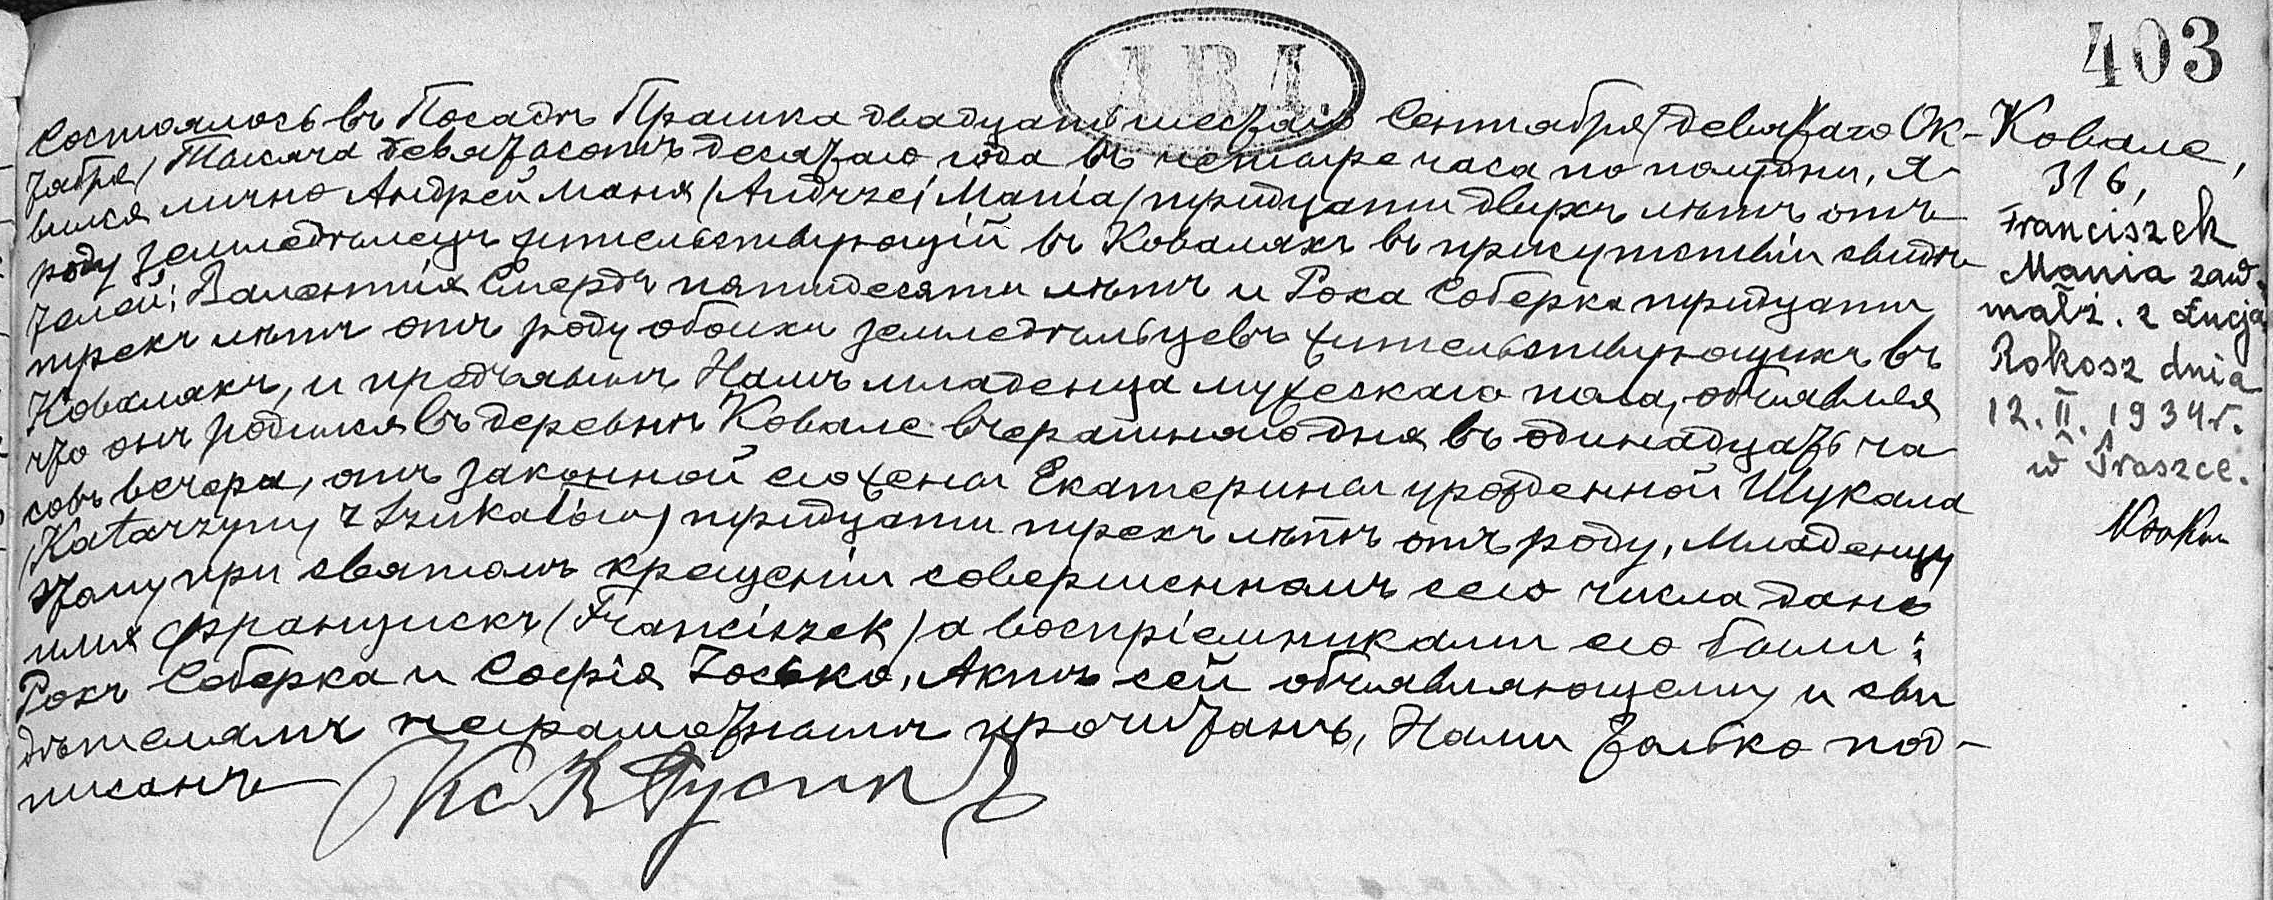 403
А.В.Д.
Состоялось въ Посадѣ Прашка двадцать шестаго Сентября /девятаго Ок-
тября/ Тысяча девятьсотъ десятаго года въ четыре часа по полудни, Я-
вился лично Андрей Маня /Andrzej Mania/ тридцати двухъ лѣтъ отъ
роду земледѣлецъ жительствующій въ Ковалахъ въ присутствіи свидѣ-
телей: Валентія Смерда пятидесяти лѣтъ и Рока Соберка тридцати
трехъ лѣтъ отъ роду обоихъ земледѣльцевъ жительствующихъ въ
Ковалахъ, и предъявилъ Намъ младенца мужескаго пола, объявляя
что онъ родился въ деревнѣ Ковале вчерашняго дня въ одинадцать ча
совъ вечера, отъ законной его жены Екатерины урожденной Шукала
/Katarzyny z Szukałów/ тридцати трехъ лѣтъ отъ роду, Младенцу
этому при святомъ крещеніи совершенномъ сего числа дано
имя Францискъ /Franciszek/ а воспріемниками его были:
Рохъ Соберка и Софія Йосько, Актъ сей объявляющему и сви
дѣтелямъ неграмотнымъ прочитанъ, Нами только под-
писанъ
Ковале,
316,
Franciszek
Mania zaw.
małż. z Łucją
Rokosz dnia
12. II. 1934 r.
w Praszce.